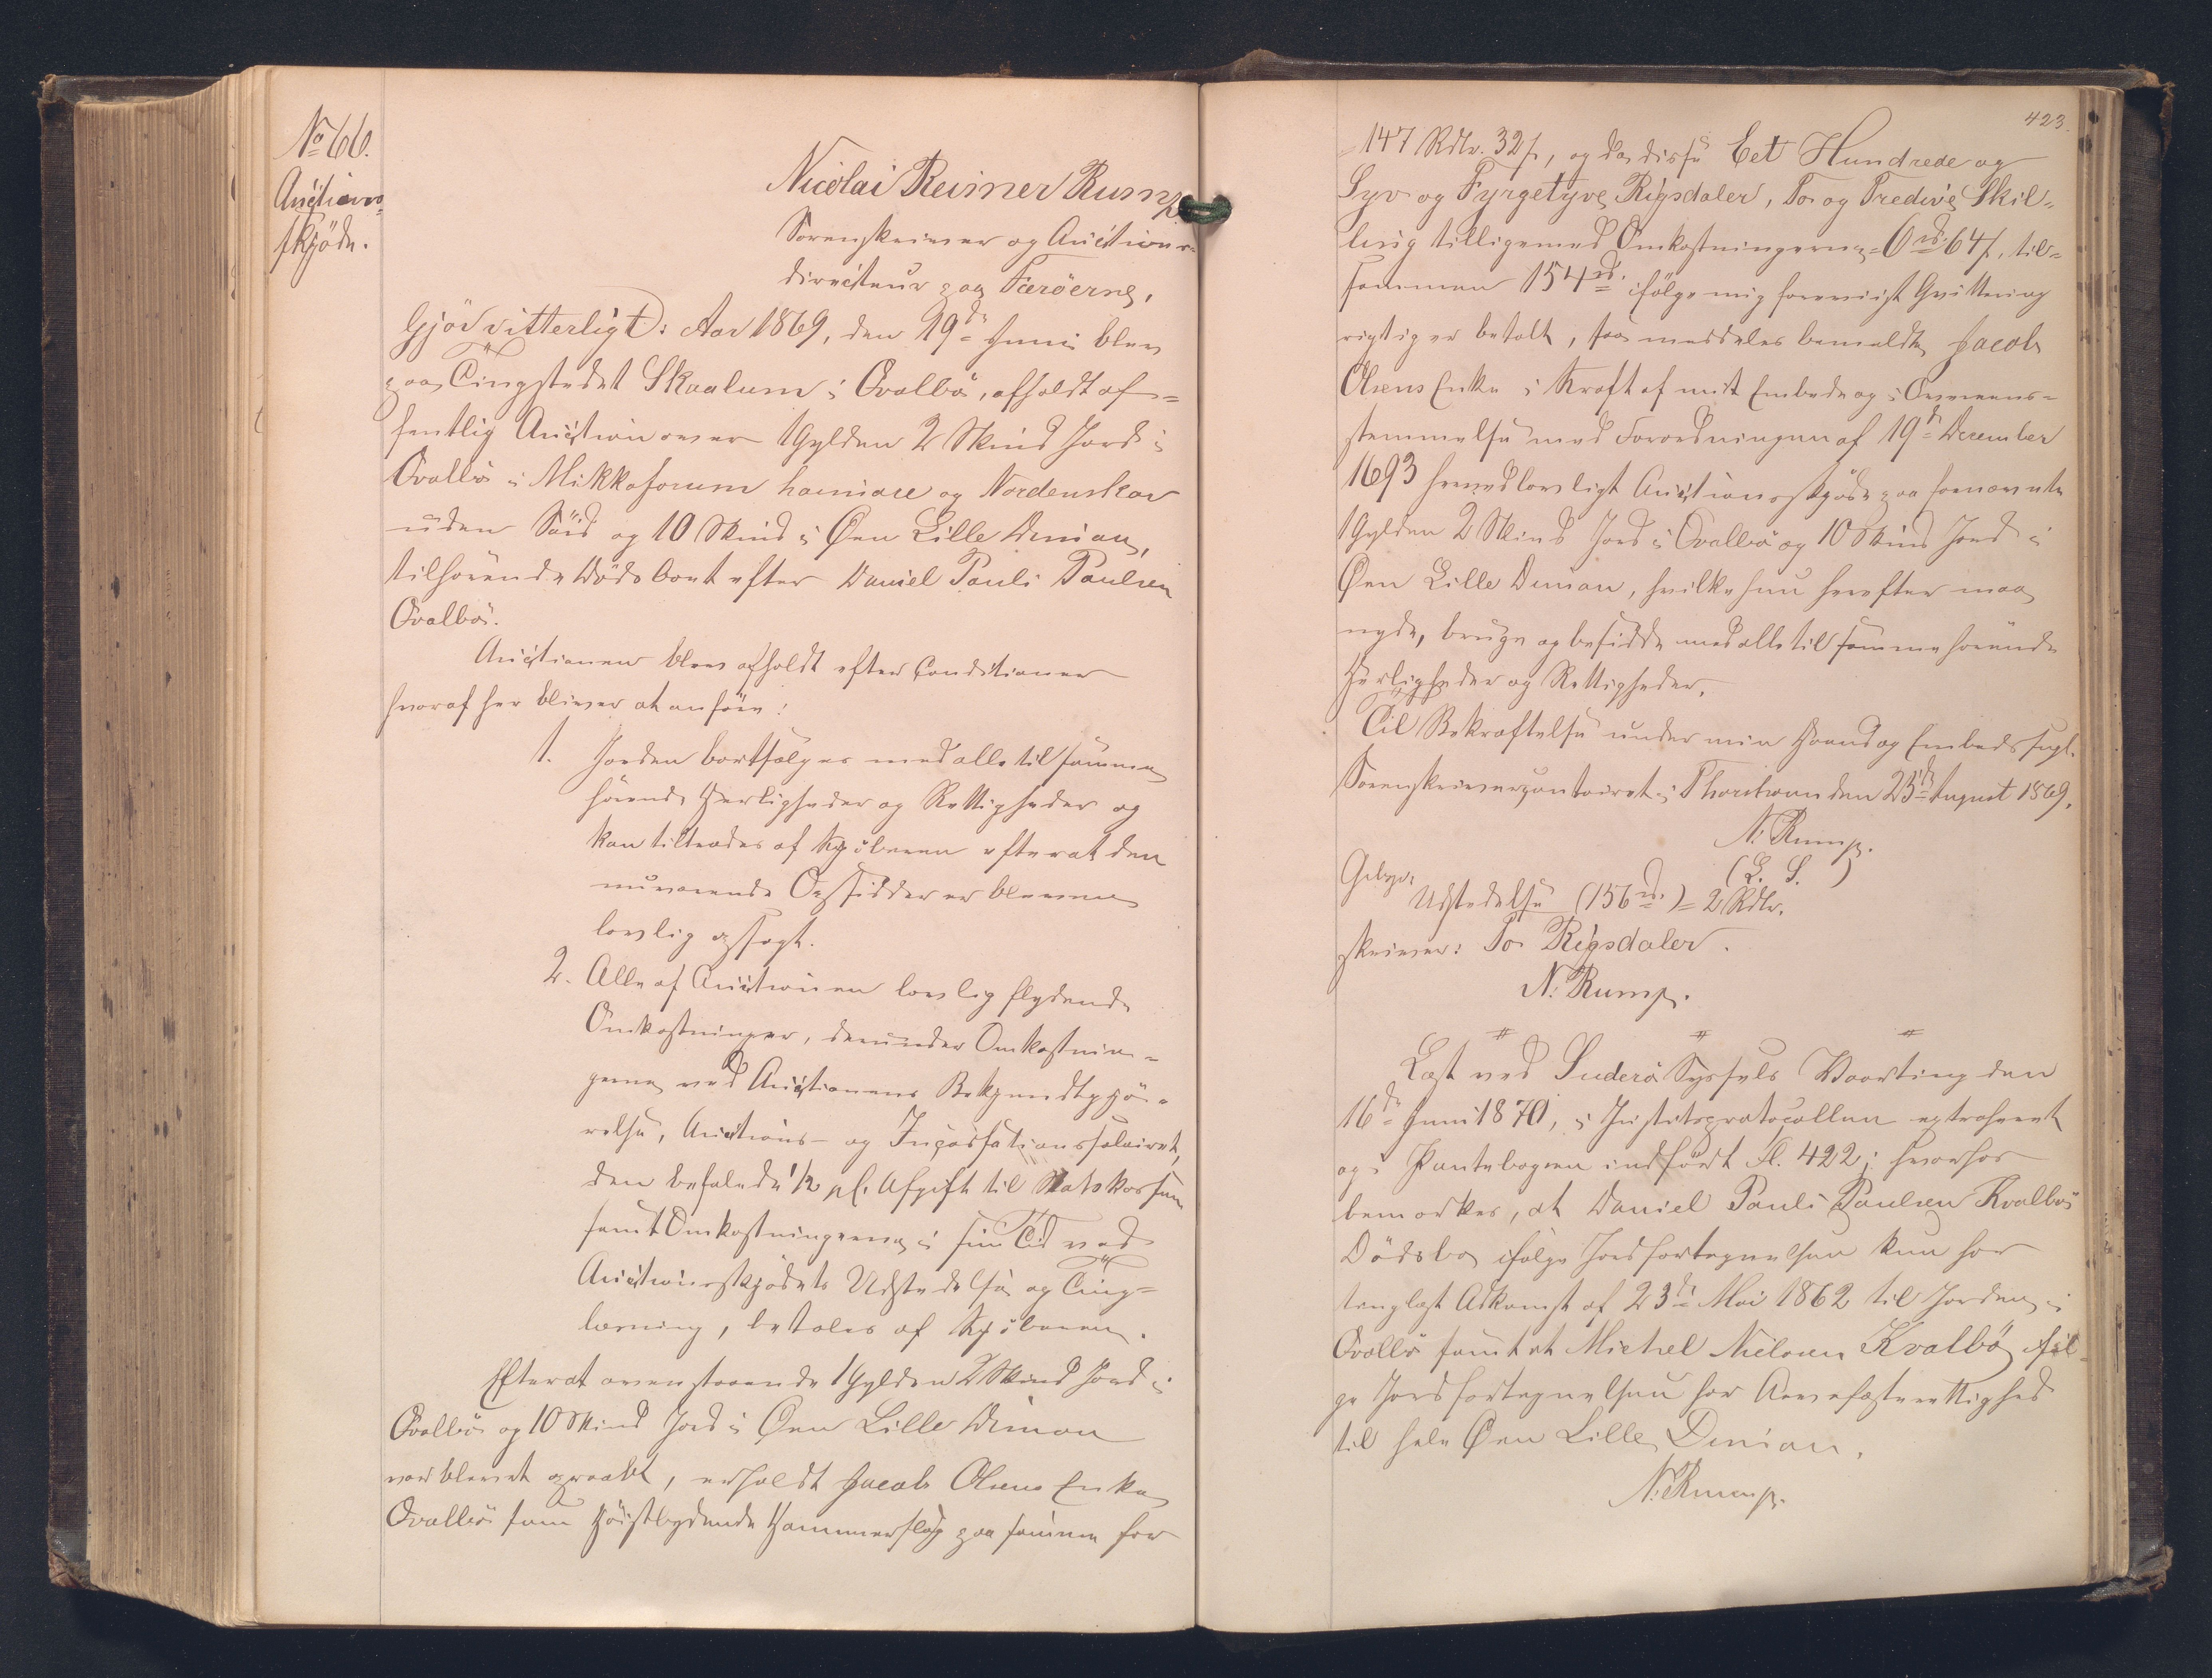 No 66.
Auctions-
skjöde.
Nicolai Reimer Rump
Sorenskriver og Auctions-
directeur paa Færöerne,
Gjör vitterligt: Aar 1869, den 19de Juni blev
paa Tingstedet Skaalum i Qvalbö, afholdt of=
fentlig Auction over 1 Gylden 2 Skind Jord i
Qvalbö i Mikkaforum hamiare og Nordenskov
uden Söid og 10 Skind i Øen Lille Dimon,
tilhörende Dödsboet efter Daniel Pauli Paulsen
Qvalbö.
Auctionen blev afholdt efter Conditioner
hvoraf her bliver at anföre:
1. Jorden bortsælges med alle til samme
hörende Herligheder og Rettigheder og
kan tiltrædes af Kjöberen efterat den
nuværende Opsidder er bleven
lovlig opsagt.
2. Alle af Auctionen lovlig flydende
Omkostninger, derunder Omkostnin=
gerne ved Auctionens Bekjendtgjö=
relse, Auctions- og Incassationssalairet,
den befalede 1/2 pC. Afgift til Statskassen
samt Omkostningerne i sin Tid ved
Auctionsskjödets Udstedelse og Ting=
læsning, betales af Kjöberen.
Efterat ovenstaaende 1 Gylden 2 Skind Jord i
Qvalbö og 10 Skind Jord i Øen Lille Dimon
var blevet opraabt, erholdt Jacob Olsens Enke
Qvalbö som Höistbydende Hammerslag paa samme for
423.
147 Rdlr. 32 s, og da disse Eet Hundrede og
Syv og Fyrgetyve Rigsdaler, To og Tredive Skil=
ling tilligemed Omkostningerne = 6 rd 64 s, til=
sammen 154 rd. ifölge mig foreviist Qvittering
rigtig er betalt, saa meddeles bemeldte Jacob
Olsens Enke i Kraft af mit Embede og i Overeens=
stemmelse med Forordningen af 19de December
1693 herved lovligt Auctionsskjöde paa fornævnte
1 Gylden 2 Skind Jord i Qvalbö og 10 Skind Jord i
Øen Lille Dimon, hvilke hun herefter maa
nyde, bruge og besidde med alle til samme hörende
Herligheder og Rettigheder.
Til Bekræftelse under min Haand og Embedssegl.
Sorenskrivercontoiret i Thorshavn den 23de August 1869.
N. Rump.
(L. S.)
Gebyr:
Udstedelse (156 rd.) = 2 Rdlr.
skriver: To Rigsdaler.
N. Rump.
Læst ved Suderö Syssels Vaarting den
16de Juni 1870, i Justitsprotocollen extraheret
og i Pantebogen indfört Fol. 422; hvorhos
bemærkes, at Daniel Pauli Paulsen Kvalbö
Dödsbo ifölge Jordfortegnelsen kun har
tinglæst Adkomst af 23de Mai 1862 til Jorden i
Qvalbö samt at Michel Nielsen Kvalbö iföl=
ge Jordfortegnelsen har Arvefæsterettighed
til hele Øen Lille Dimon.
N. Rump.